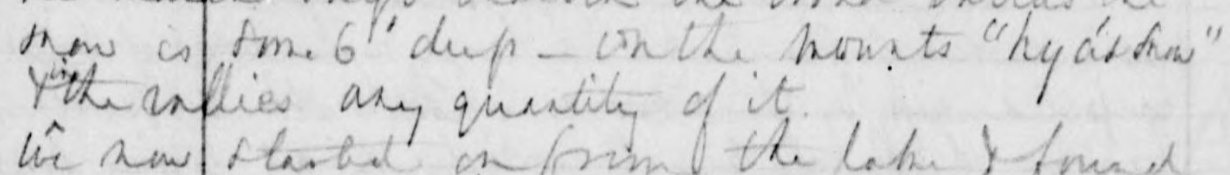 snow is some 6" deep - on the mounts "hyas snow"
& in the vallies any quantity of it.
We now started on from the lake & found